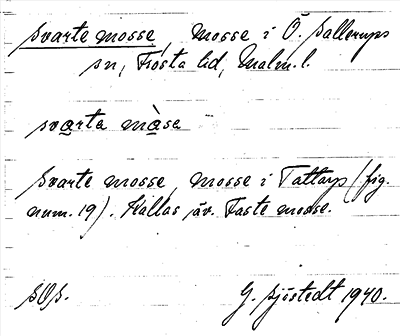 Svarte mosse, Mosse i Ö. Sallerups
sn, Frosta hd, Malm. l.
svarta màse
Svarte mosse, mosse i Tattarp (fig.
num. 19). Kallas äv. Faste mosse.
SOS.    G. Sjöstedt 1940.